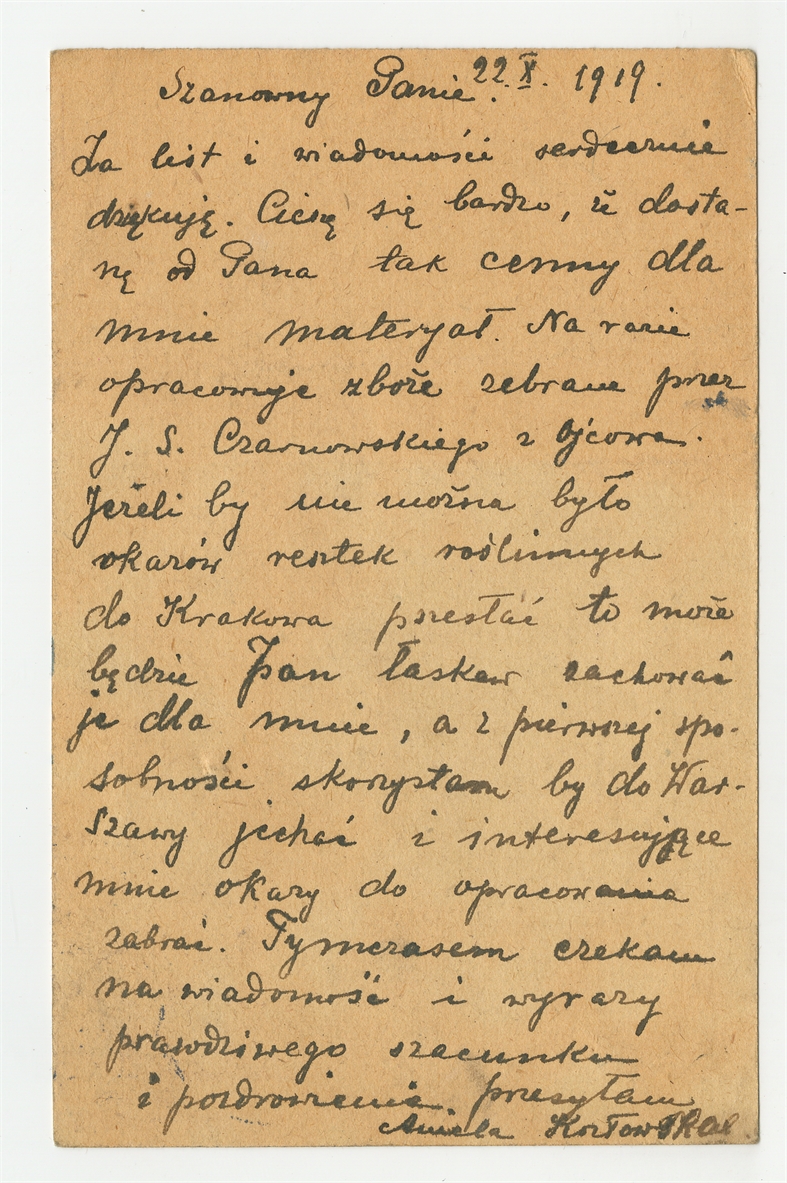 Szanowny Panie. 22. X. 1919.
Za list i wiadomości serdecznie
dziękuję. Cieszę się bardzo, iż dosta-
nę od Pana tak cenny dla
mnie materyał. Na razie
opracowuje zboże zebrane przez
J. S. Czarnowskiego z Ojcowa.
Jeżeli by nie można było
okazów resztek roślinnych
do Krakowa przesłać to może
będzie Pan łaskaw zachować
je dla mnie, a z pierwszej spo-
sobności skorzystam by do War-
szawy jechać i interesujące
mnie okazy do opracowania
zabrać. Tymczasem czekam
na wiadomość i wyrazy
prawdziwego szacunku
i pozdrowienia przesyłam
Aniela Kozłowska